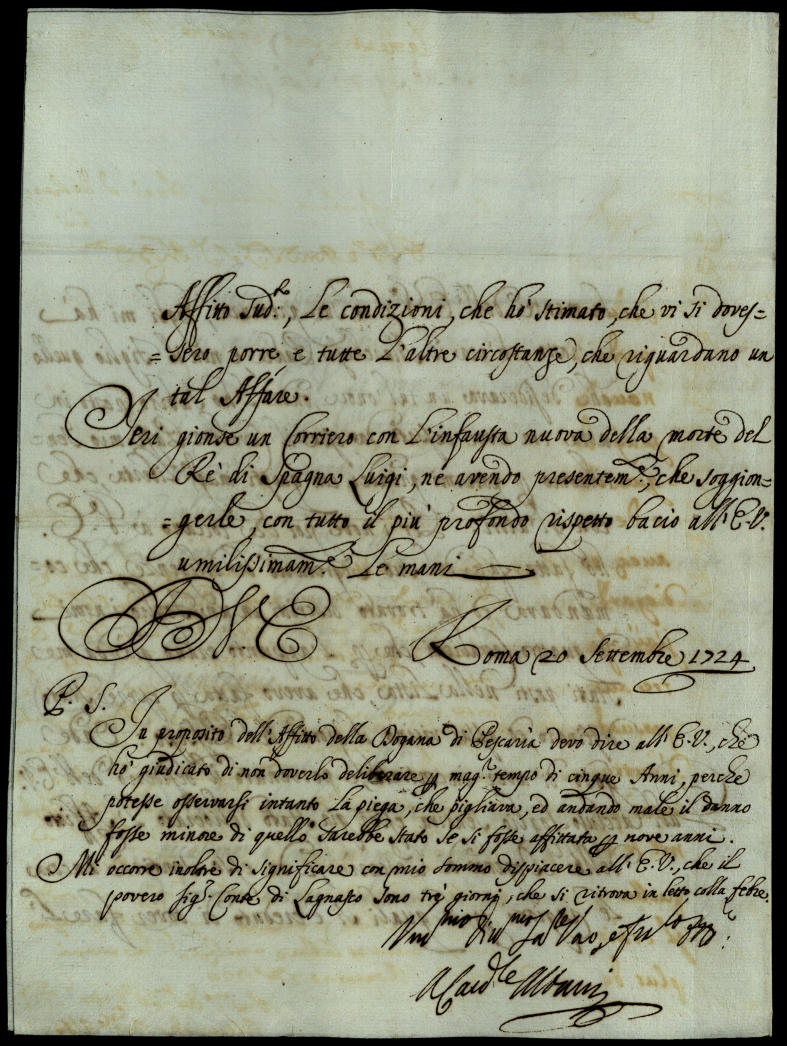 Affitto sud:to, Le condizioni, che hò stimato, che vi si doves=
=sero porre, e tutte L'altre circostanze, che riguardano un
tal Affare.
Jeri gionse un Corriero con L'infausta nuova della morte del
Rè di Spagna Luigi, ne avendo presentem:e, che soggion=
=gerle, con tutto il più profondo rispetto bacio all'E.V.
umilissimam:e Le mani
Roma 20 Settembre 1724
P. S.
In proposito dell'Affitto della Dogana di Pescaria devo dire all'E.V., che
hò giudicato di non doverlo deliberare p mag:r tempo di cinque Anni, perche
potesse osservarsi intanto La piega, che pigliava, ed andando male il danno
fosse minore di quello sarebbe stato se si fosse affittata p nove anni.
Mi occorre inoltre di significare con mio sommo dispiacere all'E.V., che il
povero Sig:r Conte di Lagnasco sono trè giorni, che si ritrova in letto colla febre.
A Card:le Albani